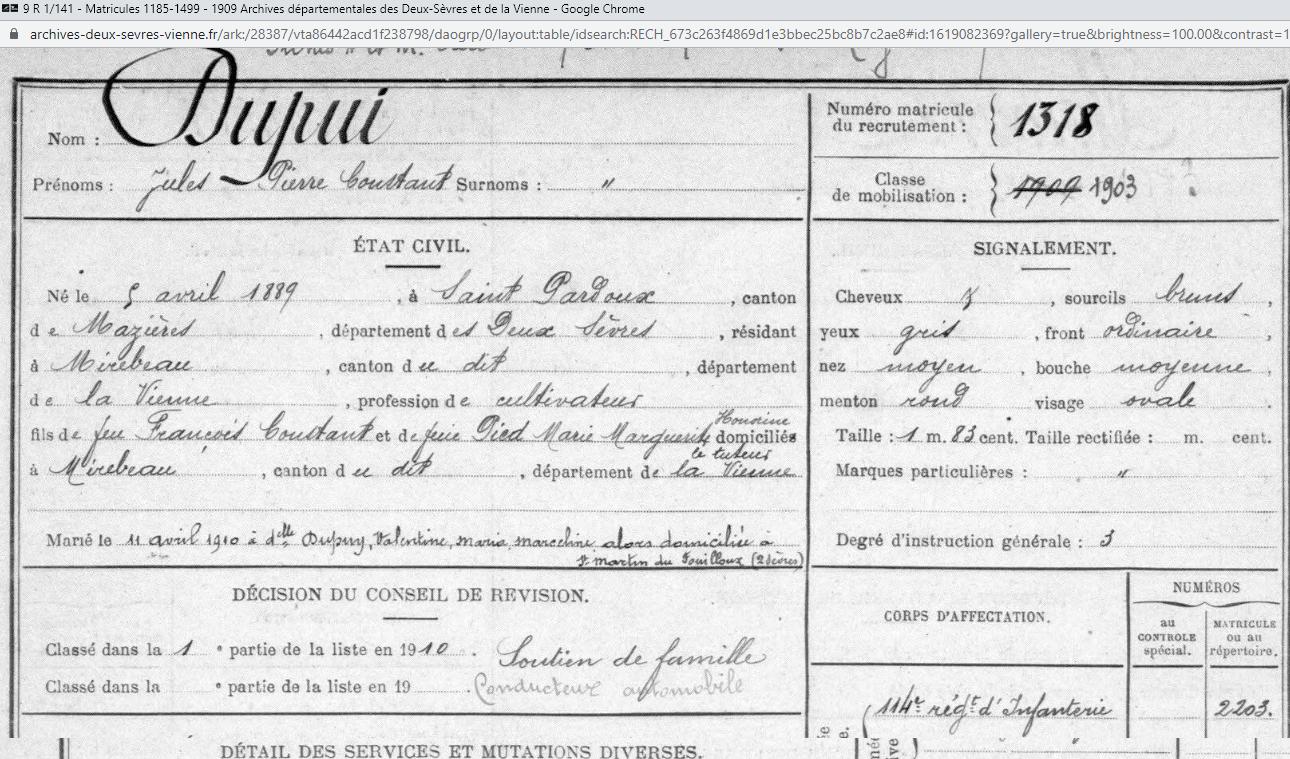 9 R 1/141 - Matricules 1185-1499 - 1909 Archives départementales des Deux-Sèvres et de la Vienne - Google Chrome
archives-deux-sevres-vienne.fr/ark:/28387/vta86442acd1f238798/daogrp/0/layout:table/idsearch:RECH_673c263f4869d1e3bbec25bc8b7c2ae8#id:1619082369?gallery=true&brightness=100.00&contrast=1
Nom : Dupui
Prénoms : Jules Pierre Constant Surnoms : "
Numéro matricule
du recrutement : 1318
Classe
de mobilisation : 1909 1903
ÉTAT CIVIL.
Né le 5 avril 1889, à Saint Pardoux, canton
de Mazières, département des Deux Sèvres, résidant
à Mirebeau, canton du dit, département
de la Vienne, profession de cultivateur
fils de feu François Constant et de feue Pied Marie Marguerite Honorine domiciliés
le tuteur
à Mirebeau, canton du dit, département de la Vienne
Marié le 11 avril 1910 à delle Dupuy, Valentine, maria, marceline, alors domiciliée à
St martin du Fouilloux (2 sèvres)
SIGNALEMENT.
Cheveux, sourcils bruns,
yeux gris, front ordinaire,
nez moyen, bouche moyenne,
menton rond visage ovale.
Taille : 1 m. 83 cent. Taille rectifiée : m. cent.
Marques particulières : "
Degré d'instruction générale : 3
DÉCISION DU CONSEIL DE REVISION.
Classé dans la 1e partie de la liste en 1910. Soutien de famille
Classé dans la e partie de la liste en 19 . Conducteur automobile
CORPS D'AFFECTATION.
NUMÉROS
au
CONTROLE
spécial.
MATRICULE
ou au
répertoire.
114e régt d'Infanterie 2203.
DÉTAIL DES SERVICES ET MUTATIONS DIVERSES.